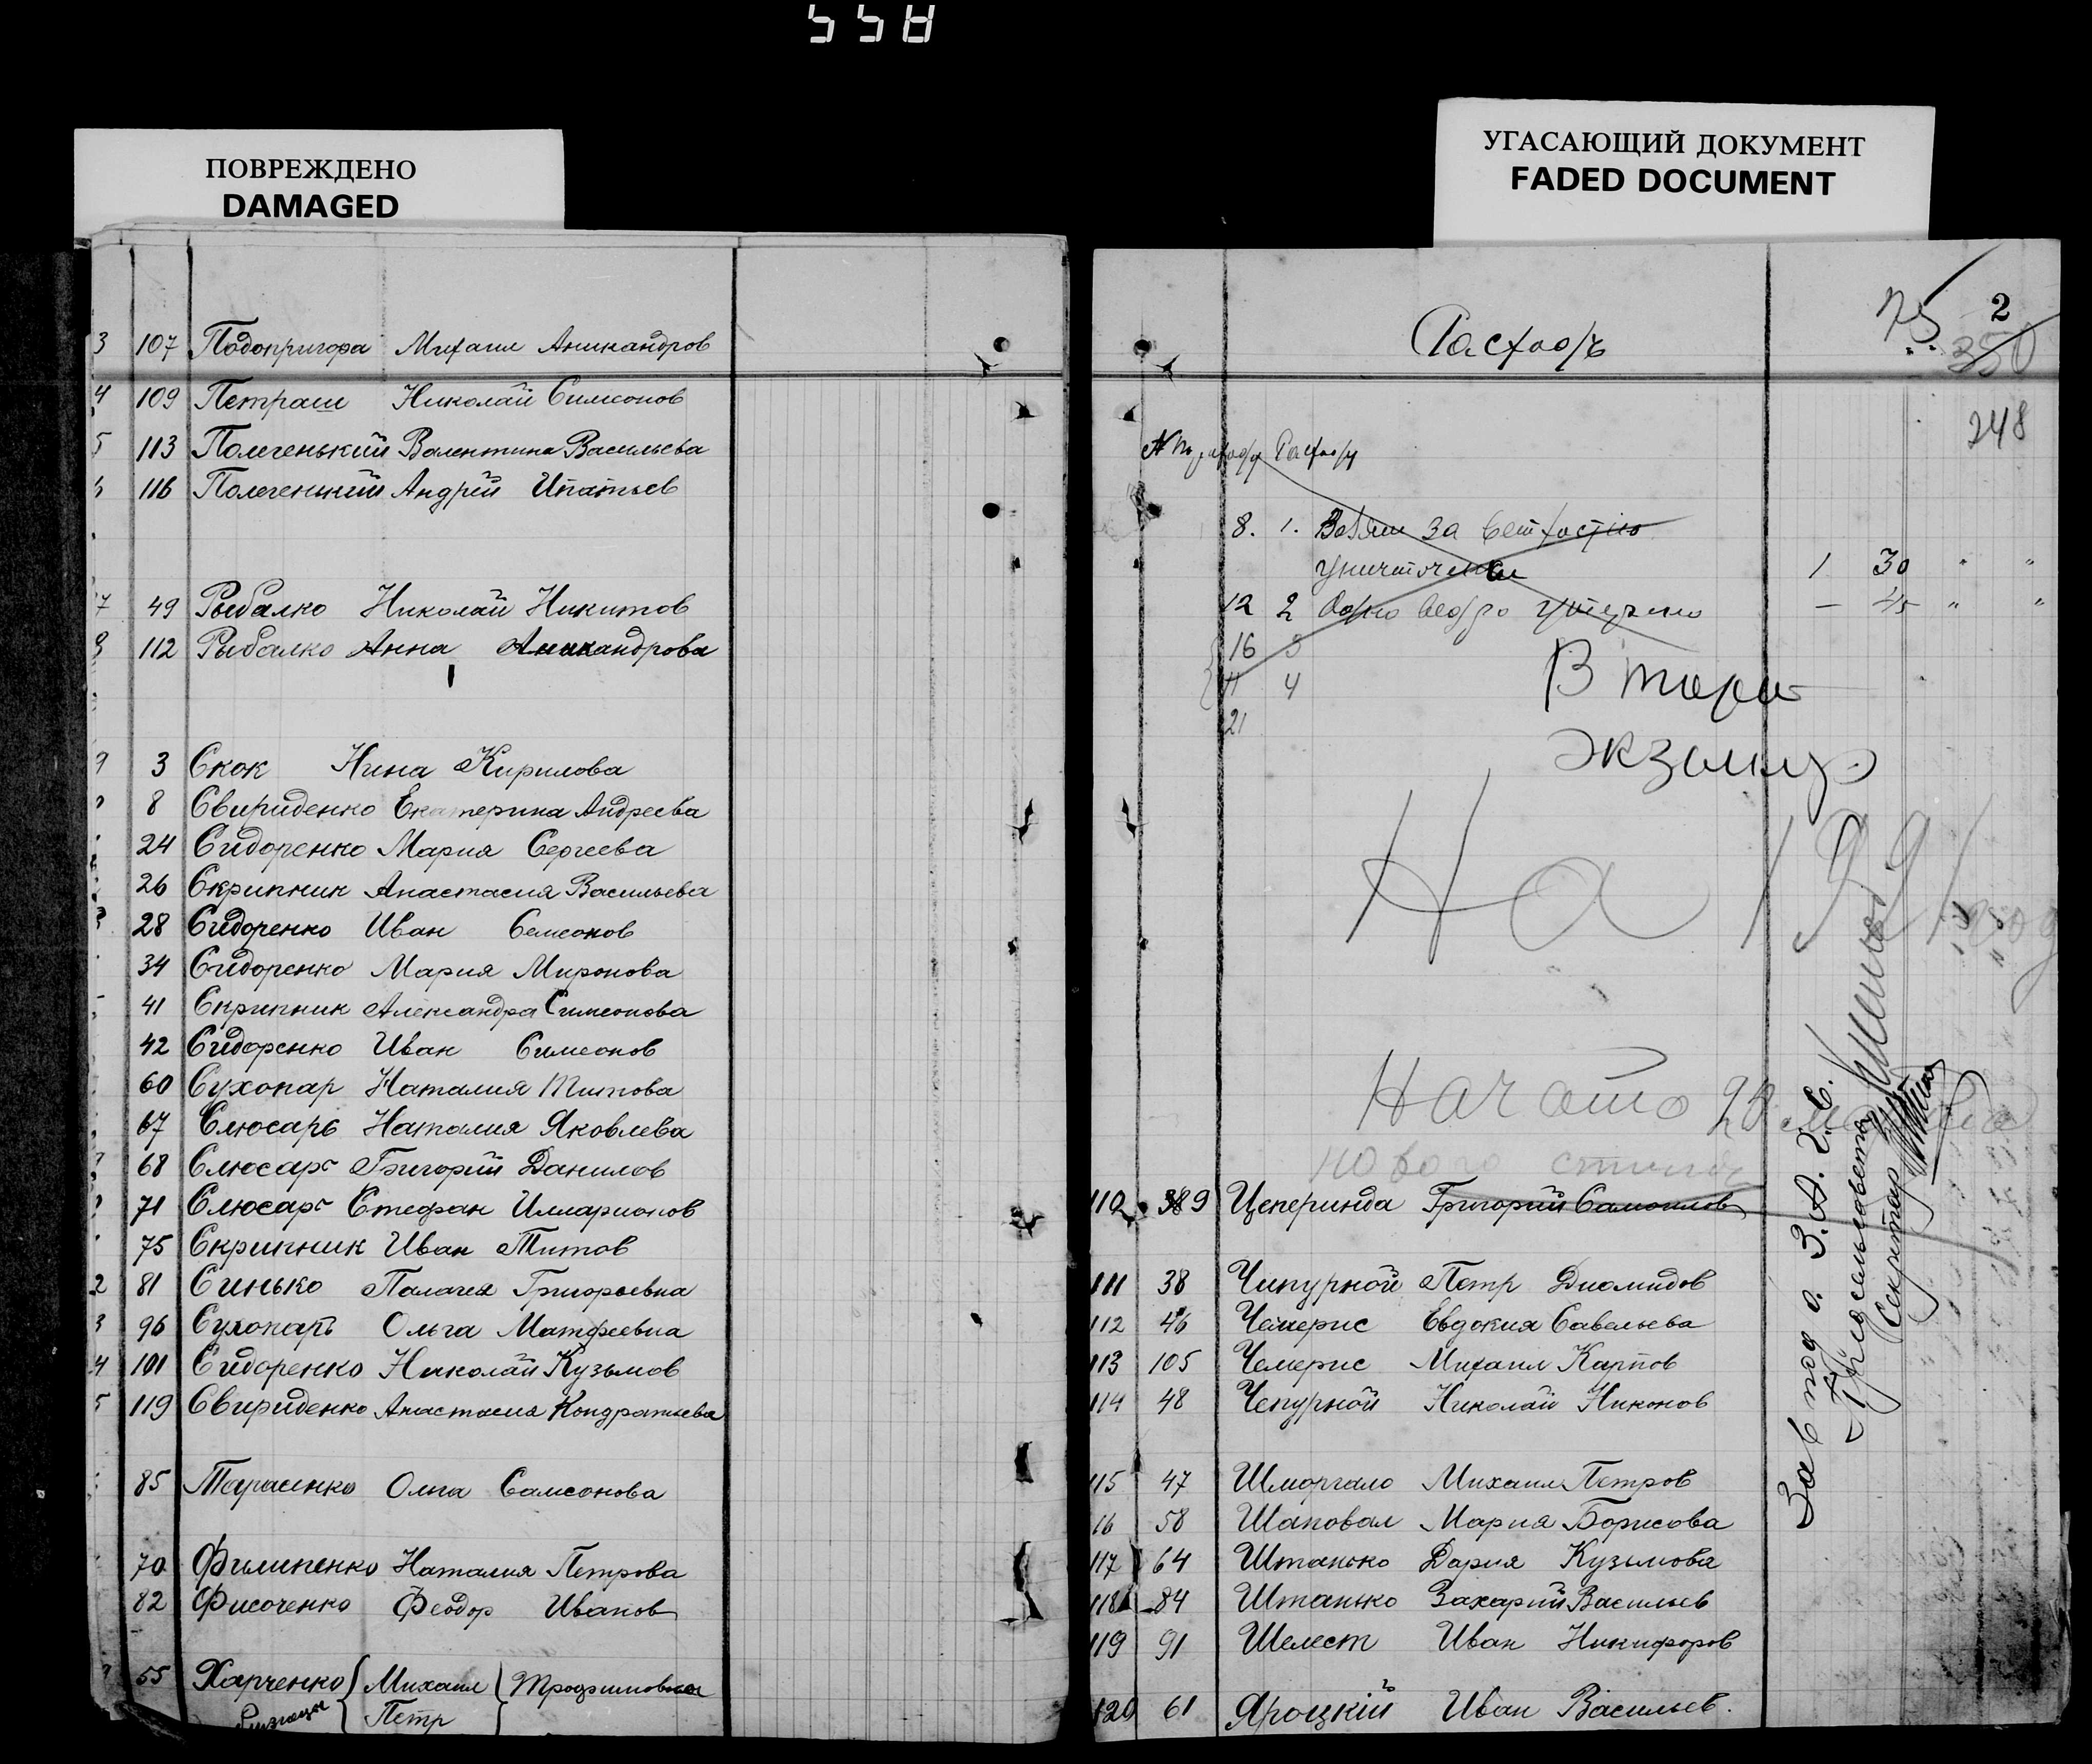 558
ПОВРЕЖДЕНО
DAMAGED
3 107 Подопригора Михаил Аникандров
4 109 Петраш Николай Симеонов
5 113 Полегенький Валентина Васильева
6 116 Полегенький Андрей Ипатьев
7 49 Рыбалко Николай Никитов
8 112 Рыбалко Анна Аникандрова
9 3 Скок Нина Кирилова
8 Свириденко Екатерина Андреева
24 Сидоренко Мария Сергеева
26 Скрипник Анастасия Васильева
28 Сидоренко Иван Семенов
34 Сидоренко Мария Миронова
41 Скрипник Александра Симеонова
42 Сидоренко Иван Симеонов
60 Сухопар Наталия Титова
67 Слюсарь Наталия Яковлева
68 Слюсарь Григорий Данилов
71 Слюсарь Стефан Илларионов
75 Скрипник Иван Титов
2 81 Синько Палагея Григорьевна
3 96 Сухопарь Ольга Матфеевна
4 101 Сидоренко Николай Кузьмов
5 119 Свириденко Анастасия Кондратьева
85 Тарасенко Ольга Самсонова
70 Филипенко Наталия Петрова
82 Фисоченко Феодор Иванов
55 Харченко Михаил Трофимов
близнецы Петр
УГАСАЮЩИЙ ДОКУМЕНТ
FADED DOCUMENT
2
350
Расход
248
8. 1. за ветхостью
уничтожены 1 30 " "
12 2 Одно ведро утеряно — 45 " "
16 3
4
21
На 1921 год
Начато 20
нового стиля
110 39 Цеперинда Григорий Самоилов
111 38 Чипурной Петр Диомидов
112 46 Чемерис Евдокия Савельева
113 105 Чемерис Михаил Карпов
114 48 Чепурной Николай Никонов
115 47 Шморгало Михаил Петров
16 58 Шаповал Мария Борисова
117 64 Штанько Дария Кузьмова
118 84 Штанько Захарий Васильев
119 91 Шелест Иван Никифоров
120 61 Яроцкій Иван Васильев.
Зав под о. З.А.Г.С.
Секретар